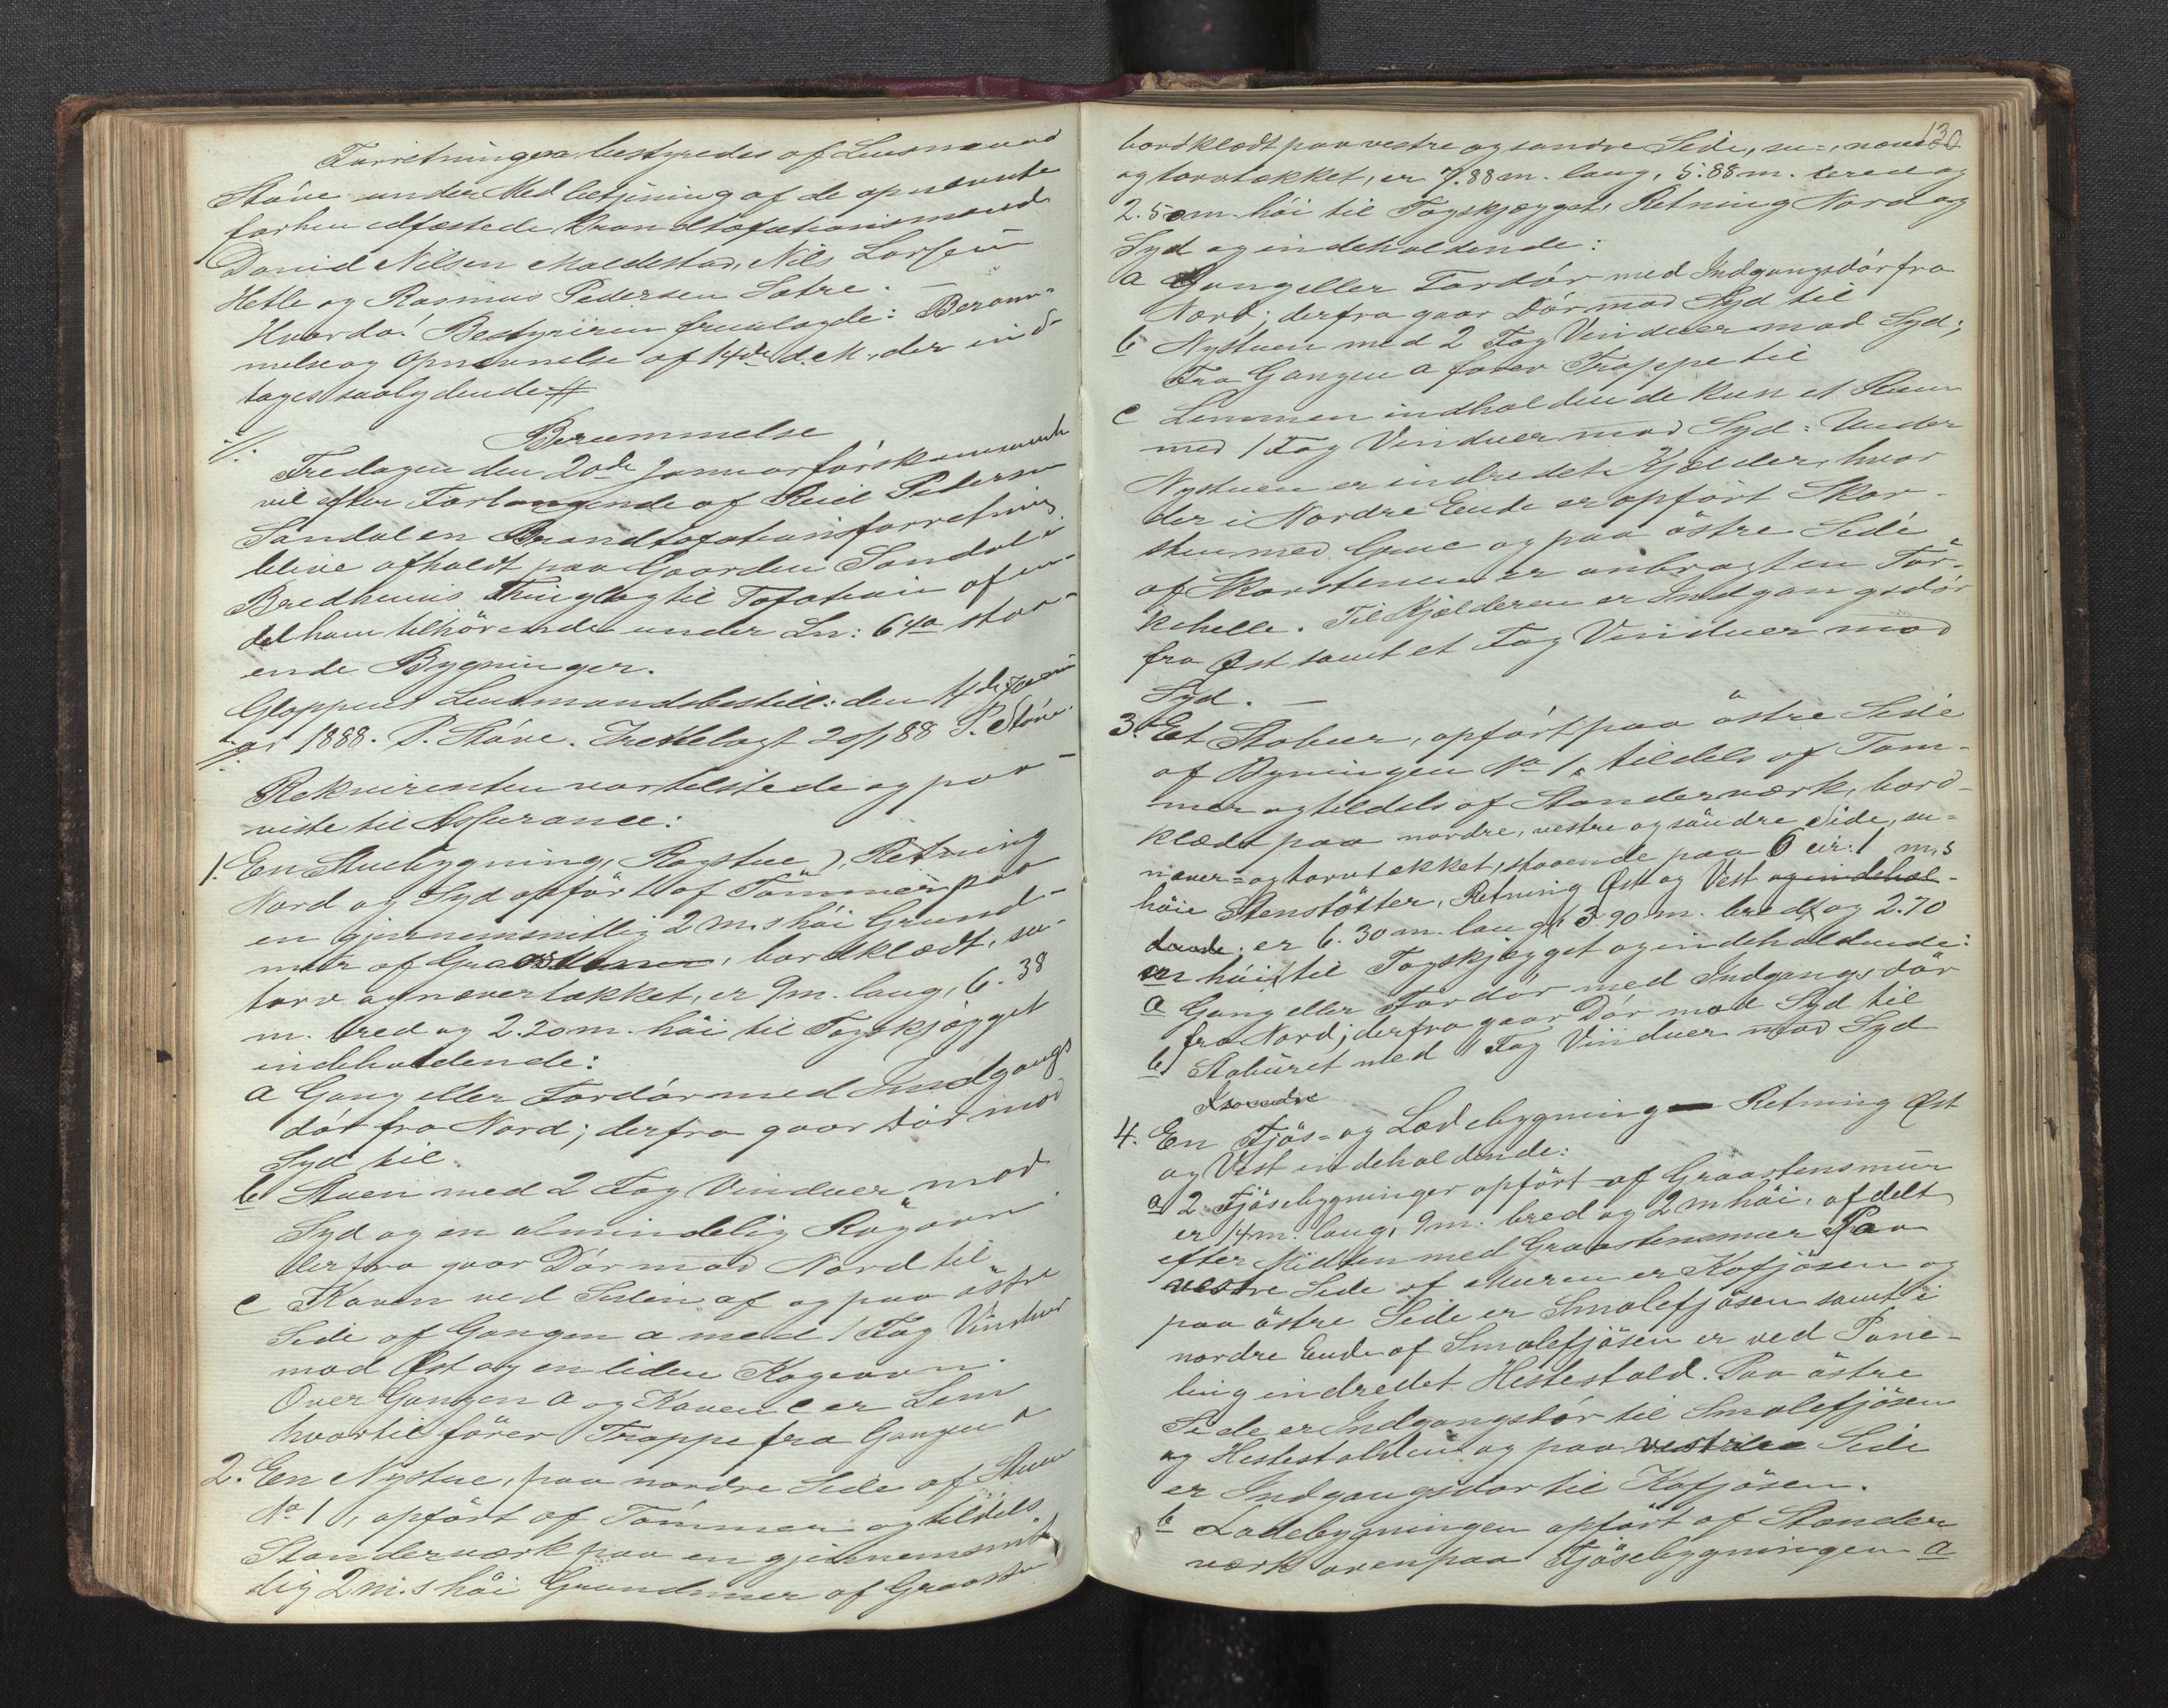 Forretningen bestyredes af Lensmand
Støve under Med betjening af de opnævnte
forhen edfæstede Brandtaxationsmænd
Daniel Nilsen Maldestad, Nils Larsen
Hetle og Rasmus Pedersen Sætre. —
Hvorda! Bestyreren fremlagde: Beram-
melse og Opnævnelse af 14de d. M., der ind-
tages saalydende #
·/. Berammelse
Fredagen den 20de Januar førstkommende
vil efter Forlangende af Peder Pedersen
Sandal en Brandtaxationsforretning
blive afholdt paa Gaarden Sandal i
Bredheims Thinglag til Taxation af en-
del ham tilhørende under Ln: 64a staa-
ende Bygninger.
Gloppens Lensmandsbestill: den 14de Janu-
ar 1888. P. Støve. Irettelagt 20/1 88 P. Støve.
·/.
Rekvirenten var tilstede og paa-
viste til Assurance:
1. En Stuebygning, Røgstue), Retning
Nord og Syd opført af Tømmer paa
en gjennemsnitlig 2 m.s høi Grund-
mur af Graasten, bordklædt, su-
torv og næver tækket, er 9 m. lang, 6.38
m. bred og 2.20 m. høi til Tagskjægget
indeholdende:
a Gang eller Fordør med Indgangs
dør fra Nord; derfra gaar Dør mod
Syd til
b Stuen med 2 Fag Vinduer mod
Syd og en almindelig Røgovn
derfra gaar Dør mod Nord til
c Koven ved Siden af og paa østre
Side af Gangen a med 1 Fag Vinduer
mod Øst og en liden Kogeovn.
Over Gangen a og Koven c er Lem
hvortil fører Trappe fra Gangen a
2. En Nystue, paa nordre Side af Stuen
No 1, opført af Tømmer og tildels
Standerværk paa en gjennemsnit
lig 2 m.s høi Grundmur af Graaste
130
bordklædt paa vestre og søndre Side, su-, næver
og torvtækket, er 7.88 m. lang, 5.88 m. bred og
2.50 m høi til Tagskjægget, Retning Nord og
Syd og indeholdende:
a Gang eller Fordør med Indgangsdør fra
Nord; derfra gaar Dør mod Syd til
b Nystuen med 2 Fag Vinduer mod Syd;
Fra Gangen a fører Trappe til
c Lemmen indholdende kun et Rum
med 1 Fag Vinduer mod Syd: Under
Nystuen er indredet Kjælder, hvor
der i Nordre Ende er opført Skor-
sten med Grue og paa østre Side
af Skorstenen er anbragt en Tør-
kehelle. Til Kjælderen er Indgangsdør
fra Øst samt et Fag Vinduer mod
Syd. —
3. Et Stabur, opført paa østre Side
af Bygningen No 1, tildels af Tøm-
mer og tildels af Standerværk, bord-
klædt paa nordre, vestre og søndre Side, su-
næver- og torvtækket, staaende paa 6 cir: 1 m.s
høie Stenstøtter, Retning Øst og Vest og indehol-
dende. er 6.30 m. lang, 3.90 m. bred og 2.70
m høi til Tagskjægget og indeholdende:
a Gang eller Fordør med Indgangsdør
fra Nord; derfra gaar Dør mod Syd til
b Staburet med 1 Fag Vinduer mod Syd
4. En Fjøs- og Ladebygning — Retning Øst
og Vest indeholdende:
a 2 Fjøsebygninger opført af Graastensmur
er 14 m. lang, 9 m. bred og 2 m høi, afdelt
efter Midten med Graastensmur Paa
vestre Side af Muren er Kofjøsen og
paa østre Side er Smalefjøsen samt i
nordre Ende af Smalefjøsen er ved Pane-
ling indredet Hestestald. Paa østre
Side er Indgangsdør til Smalefjøsen
og Hestestalden og paa vestre Side
er Indgangsdør til Kofjøsen.
b Ladebygningen opført af Stander
værk ovenpaa Fjøsebygningen a